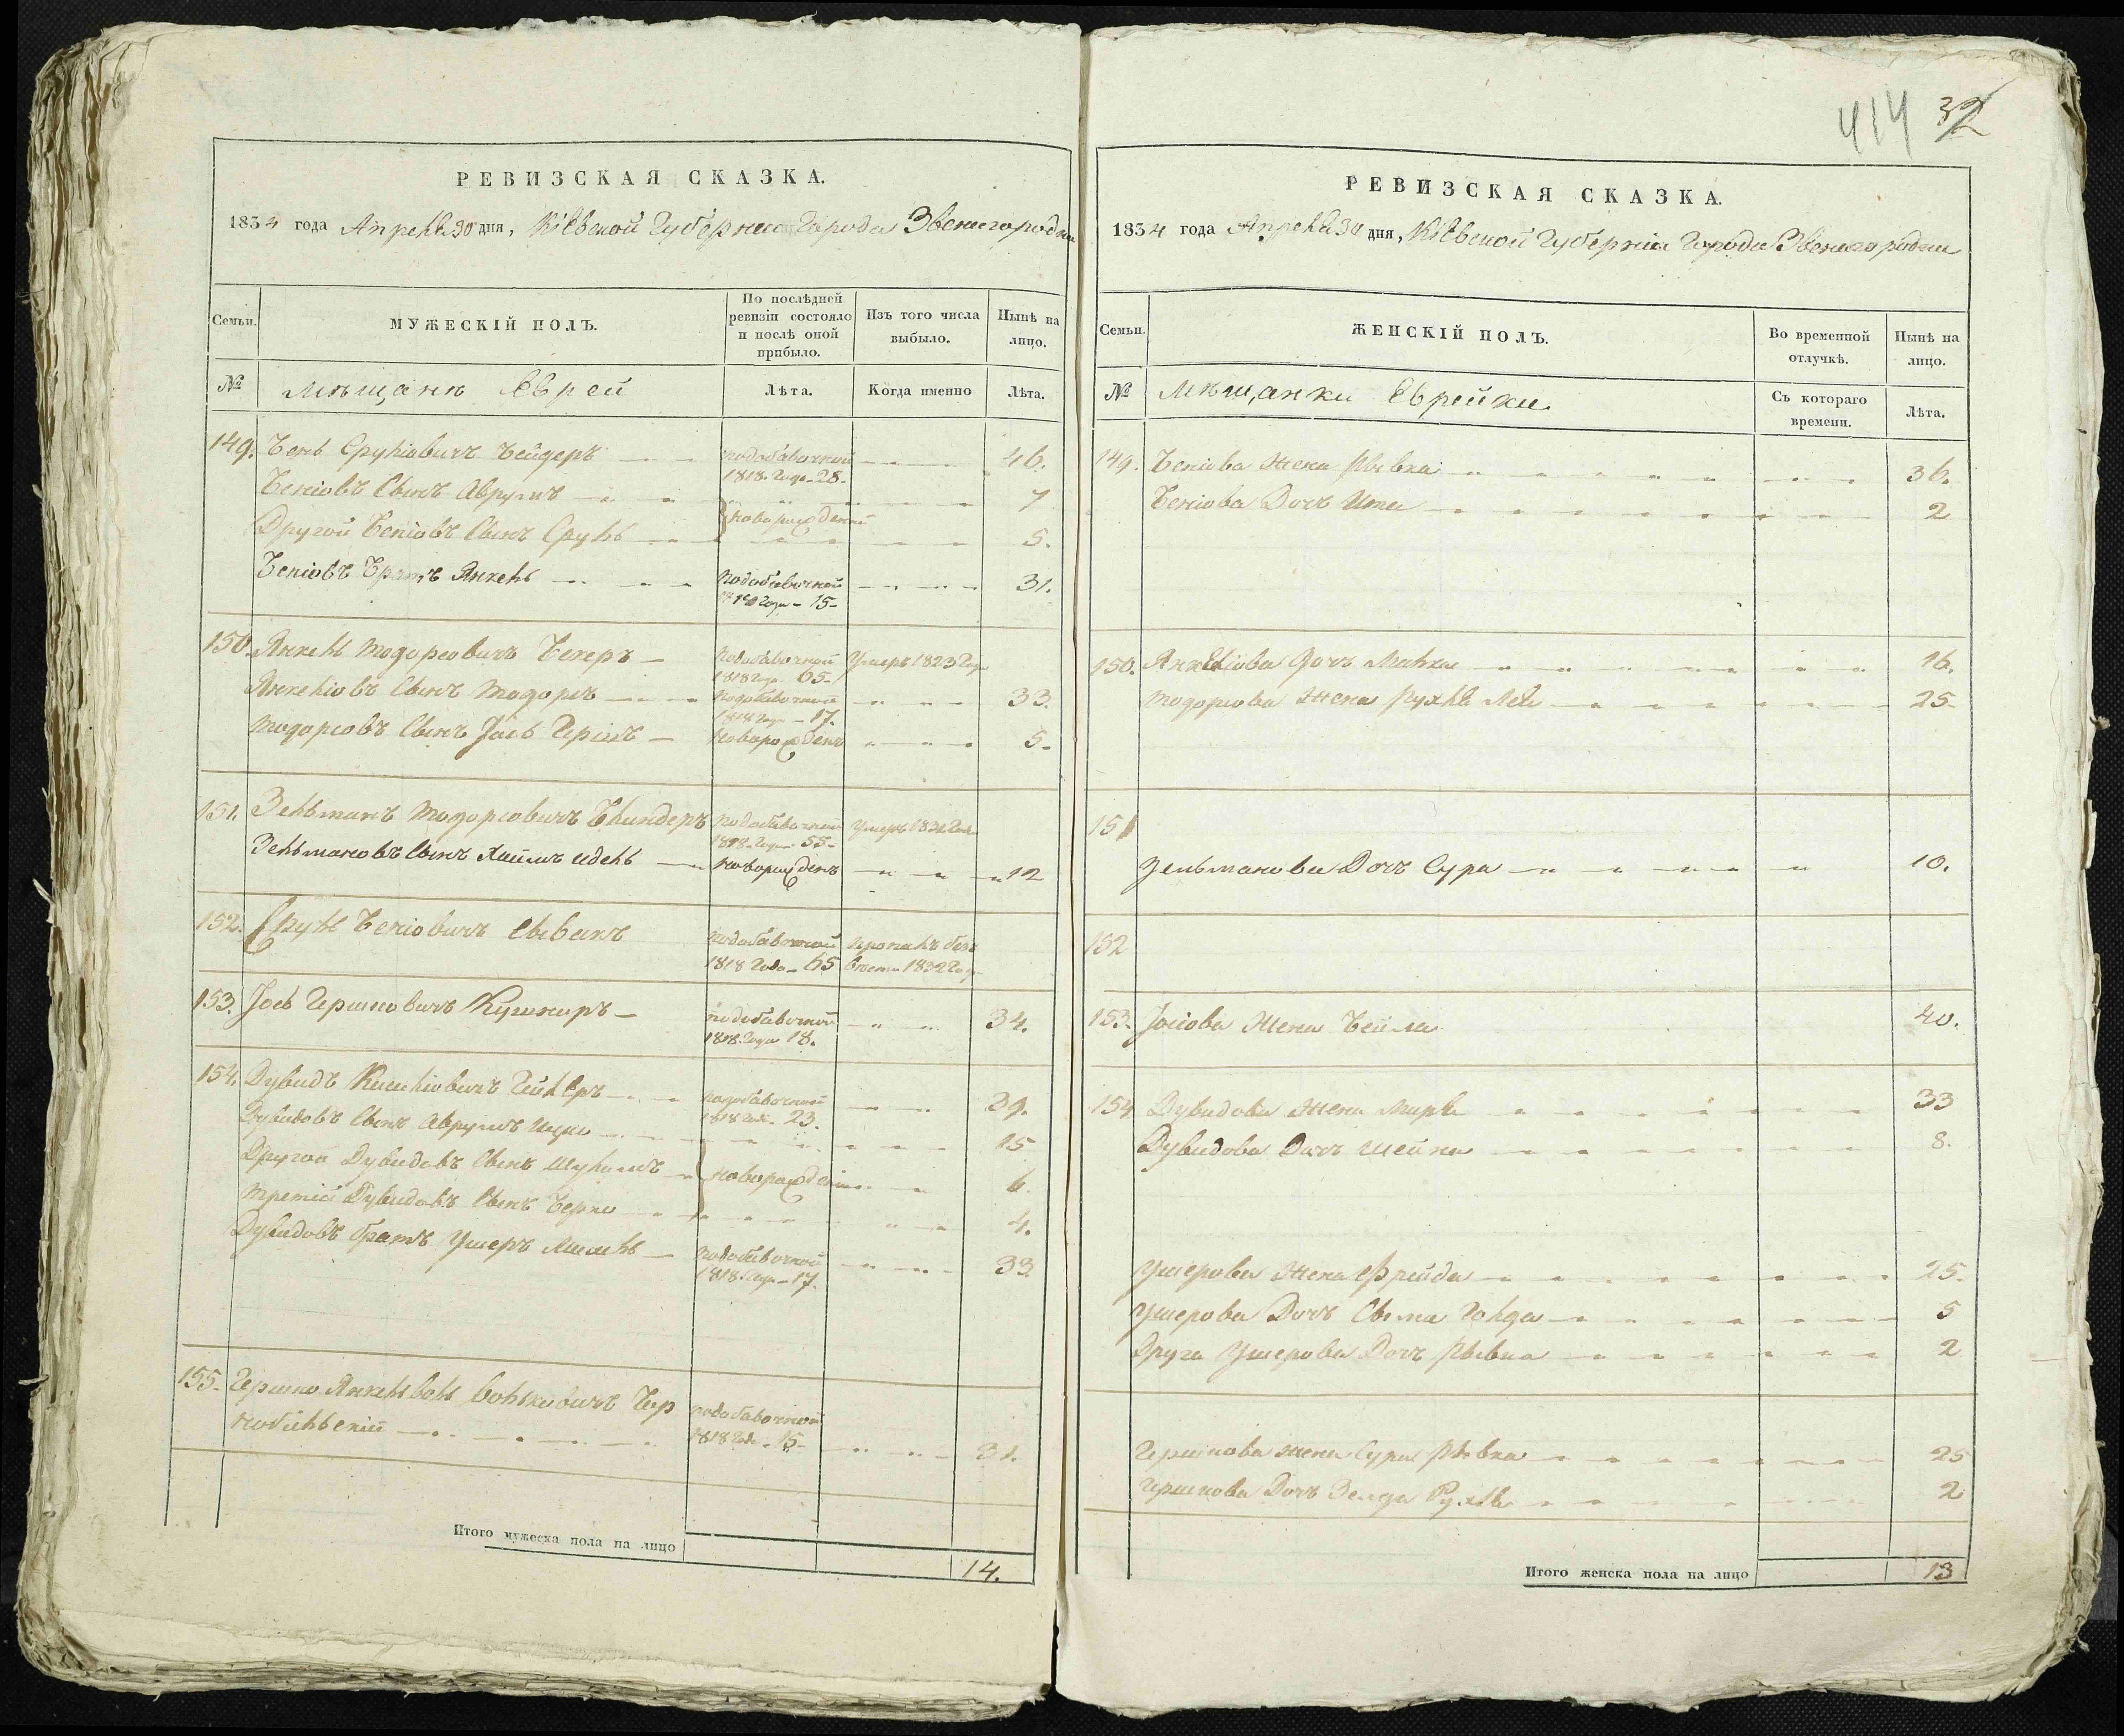 414 32
РЕВИЗСКАЯ СКАЗКА.
1834 года Апреля 30 дня, Кіевской Губерніи Города Звенигородки
Семьи.
МУЖЕСКІЙ ПОЛЪ.
По послѣдней ревизіи состояло и послѣ оной прибыло.
Изъ того числа выбыло.
Нынѣ на лицо.
№ Мѣщанѣ Еврей
Лѣта. Когда именно Лѣта.
149. Бень Срулiовичъ Бейдеръ подобавочной 46.
1818 Года 28.
Бенiовъ Сынъ Аврумъ 7
новорожденній
Другой Бенiовъ Сынъ Сруль 5.
Бенiовъ Братъ Янкель подобавочной 31.
1818 Года 15
150. Янкель Тодоресовичъ Бекеръ подобавочной Умеръ 1823 Года
1818 Года 65
Янкелiовъ Сынъ Тодоресъ подобавочной 33.
1818 Года 17.
Тодоресовъ Сынъ Iось Гершъ новорожденъ 5.
151. Зельманъ Тодоресовичъ Блиндеръ подобавочной Умеръ 1831 Года
1818 Года 55
Зельмановъ Сынъ Хаимъ Идель новорожденъ 12
152. Сруль Бенiовичъ подобавочной пропалъ безъ
1818 Года 65 вѣсти 1832 Года
153. Iось Гершковичъ Кушниръ подобавочной 34.
1818 Года 18.
154. Дувидъ Гейлеръ подобавочной 39.
1818 Года 23.
Дувидовъ Сынъ Аврумъ Ицко 15
Другой Дувидовъ Сынъ Шулимъ новорожденіи 6.
третій Дувидовъ Сынъ Берко 4.
Дувидовъ братъ Ушеръ подобавочной 33.
1818 Года 17.
155. Гершко Янкель Воль Вольковичъ Чер
нобильскій подобавочной
1818 Года 15 31.
Итого мужеска пола на лицо 14.
РЕВИЗСКАЯ СКАЗКА.
1834 года Апреля 30 дня, Кіевской Губерніи Города Звенигородки
Семьи.
ЖЕНСКІЙ ПОЛЪ.
Во временной отлучкѣ.
Нынѣ на лицо.
№ Мѣщанки Еврейки.
Съ котораго времени.
Лѣта.
149. Бенiова Жена Рывка 36.
Бенiова Дочъ Ита 2
150. Янкелiова Дочъ Малка 16.
Тодоресова Жена Рухля Лея 25
151
Зельманова Дочъ Сура 10.
152
153. Iосiова Жена Бейла 40.
154. Дувидова Жена Миря 33
Дувидова Дочъ Шейна 8.
Ушерова Жена Фрейда 25.
Ушерова Дочъ Сыма Голда 5
Друга Ушерова Дочъ Рывка 2
Гершкова жена Сура Рывка 25
Гершкова Дочъ Зелда Рухля 2
Итого женска пола на лицо 13